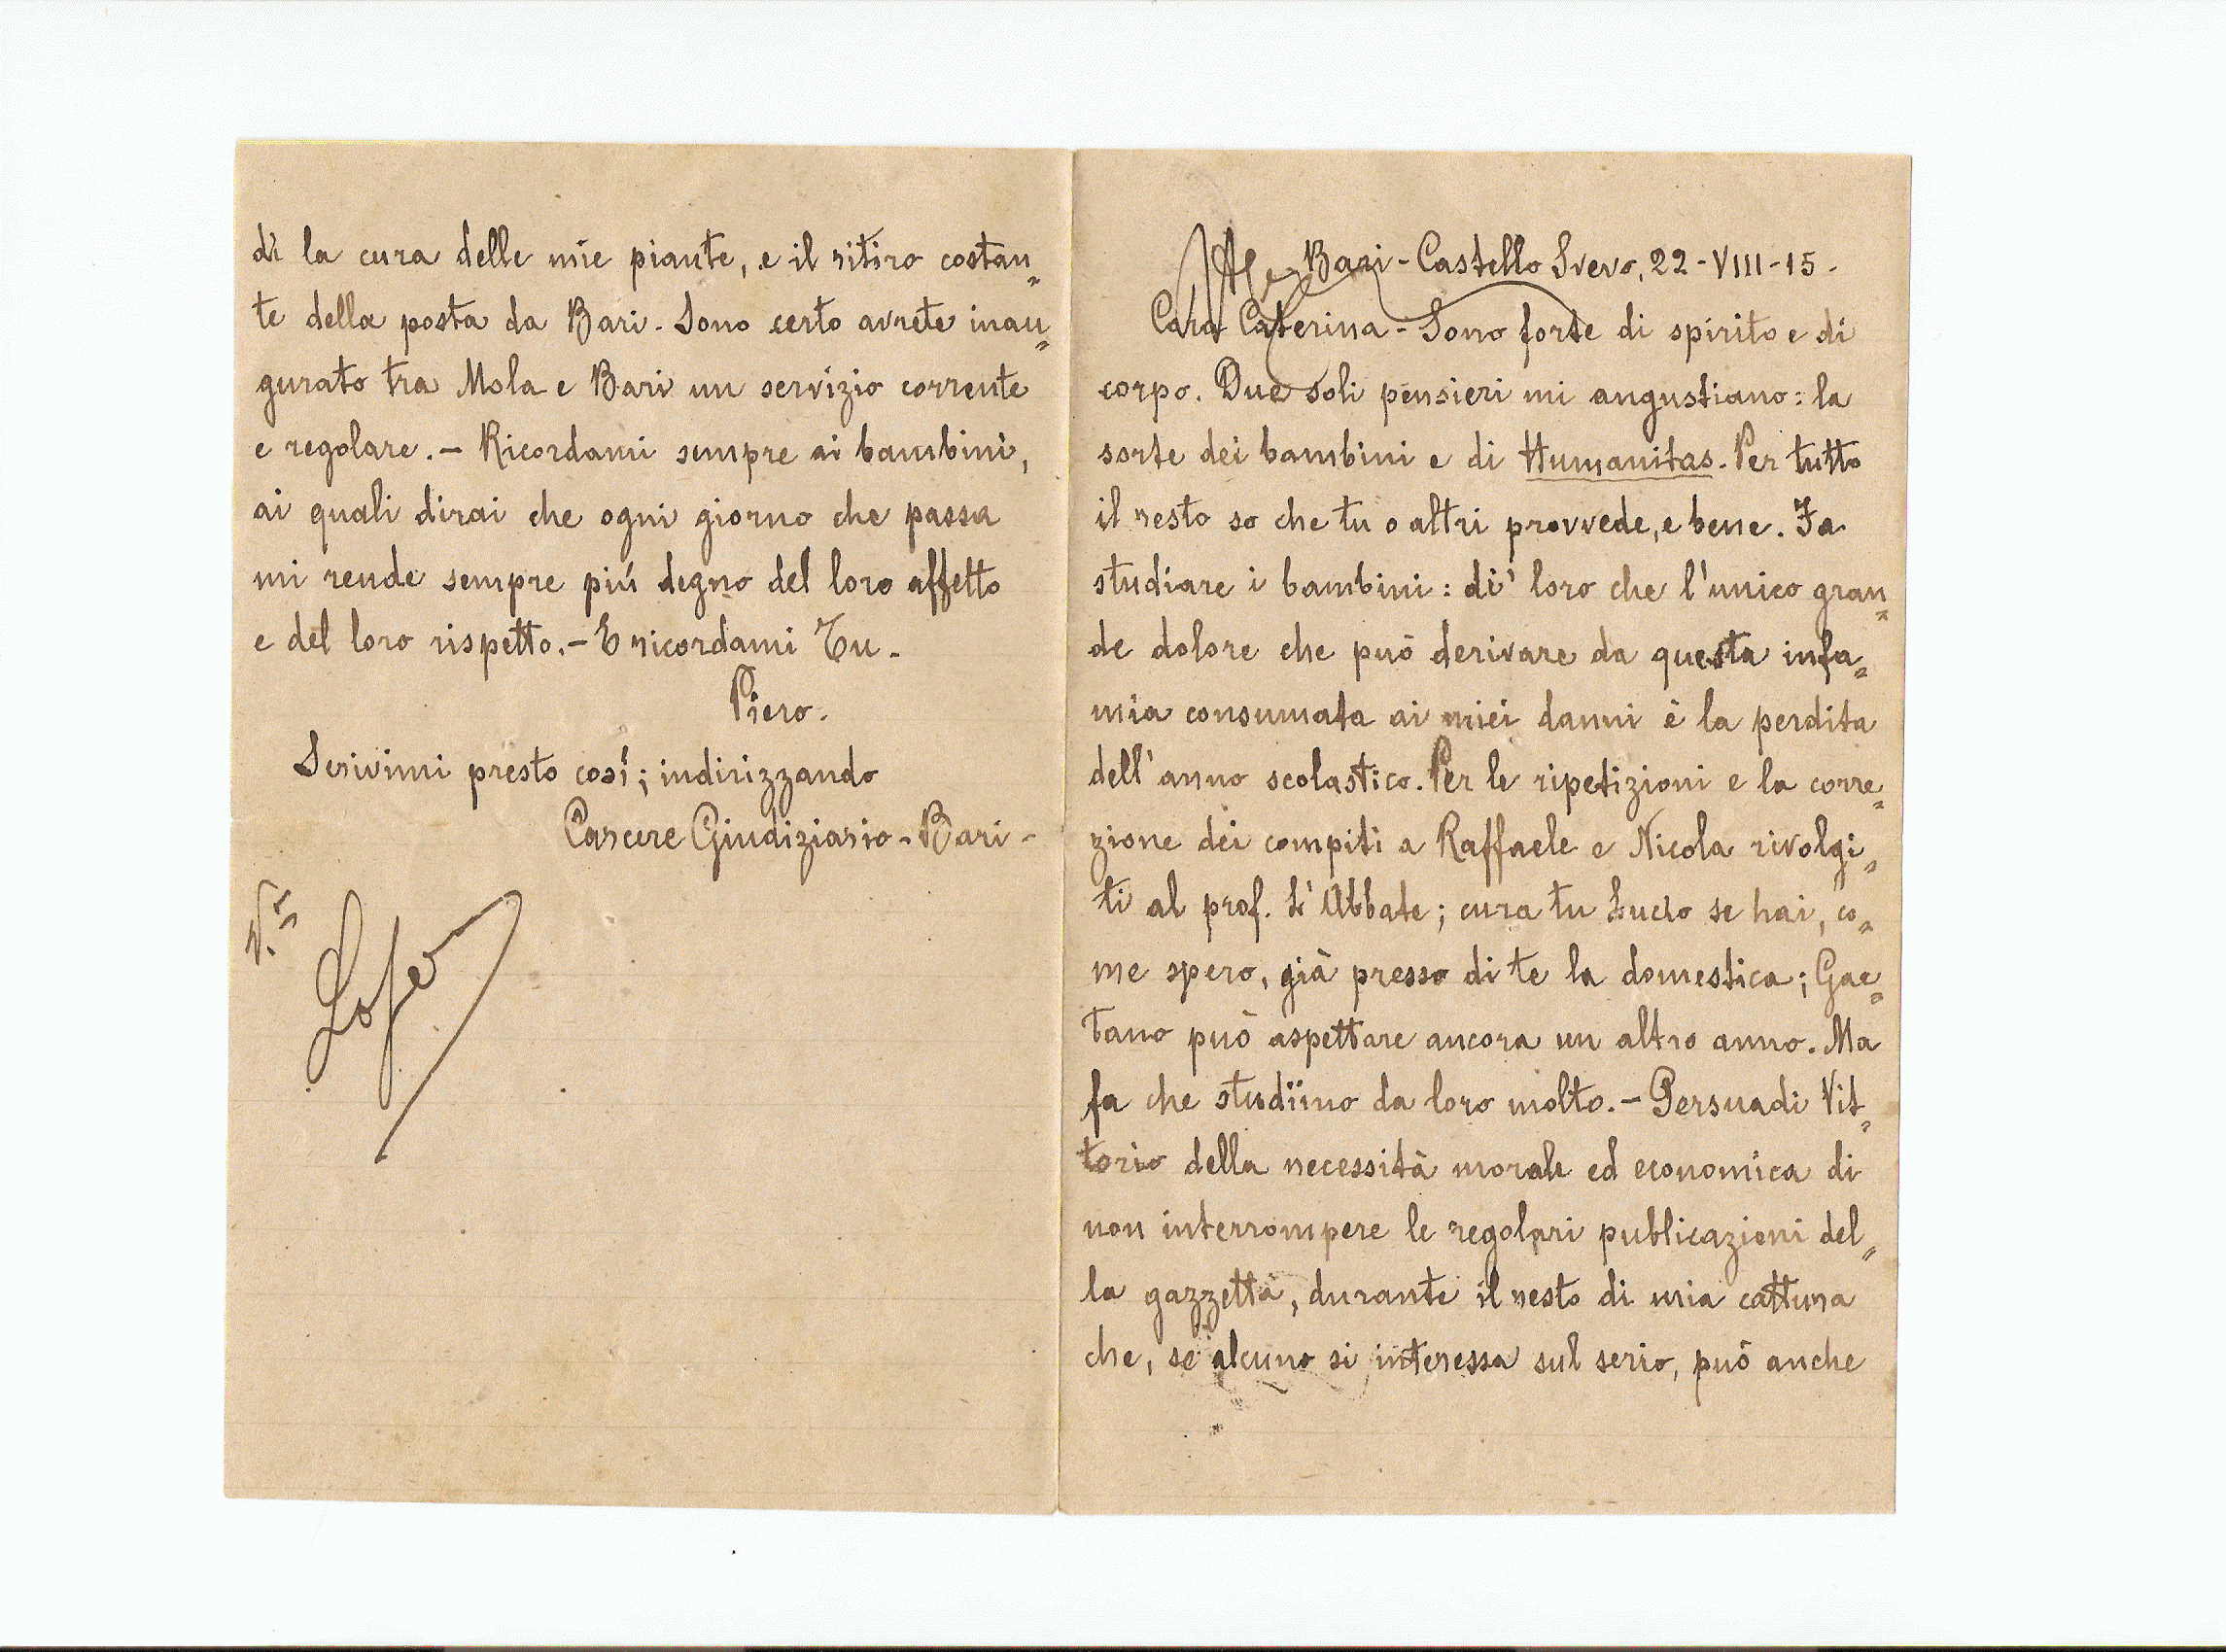 Bari - Castello Svevo, 22 - VIII - 15 -
Cara Caterina - Sono forte di spirito e di
corpo. Due soli pensieri mi angustiano: la
sorte dei bambini e di Humanitas. Per tutto
il resto so che tu o altri provvede, e bene. Fa
studiare i bambini: di' loro che l'unico gran=
de dolore che può derivare da questa infa=
mia consumata ai miei danni è la perdita
dell'anno scolastico. Per le ripetizioni e la corre=
zione dei compiti a Raffaele e Nicola rivolgi=
ti al prof. L'Abbate; cura tu Lucio se hai, co=
me spero, già presso di te la domestica; Gae=
tano può aspettare ancora un altro anno. Ma
fa che studïino da loro molto. - Persuadi Vit=
torio della necessità morale ed economica di
non interrompere le regolari publicazioni del=
la gazzetta, durante il resto di mia cattura
che, se alcuno si interessa sul serio, può anche
di la cura delle mie piante, e il ritiro costan=
te della posta da Bari. Sono certo avrete inau=
gurato tra Mola e Bari un servizio corrente
e regolare. - Ricordami sempre ai bambini,
ai quali dirai che ogni giorno che passa
mi rende sempre piú degno del loro affetto
e del loro rispetto. - E ricordami Tu.
Piero.
Scrivimi presto cosí; indirizzando
Carcere Giudiziario - Bari -